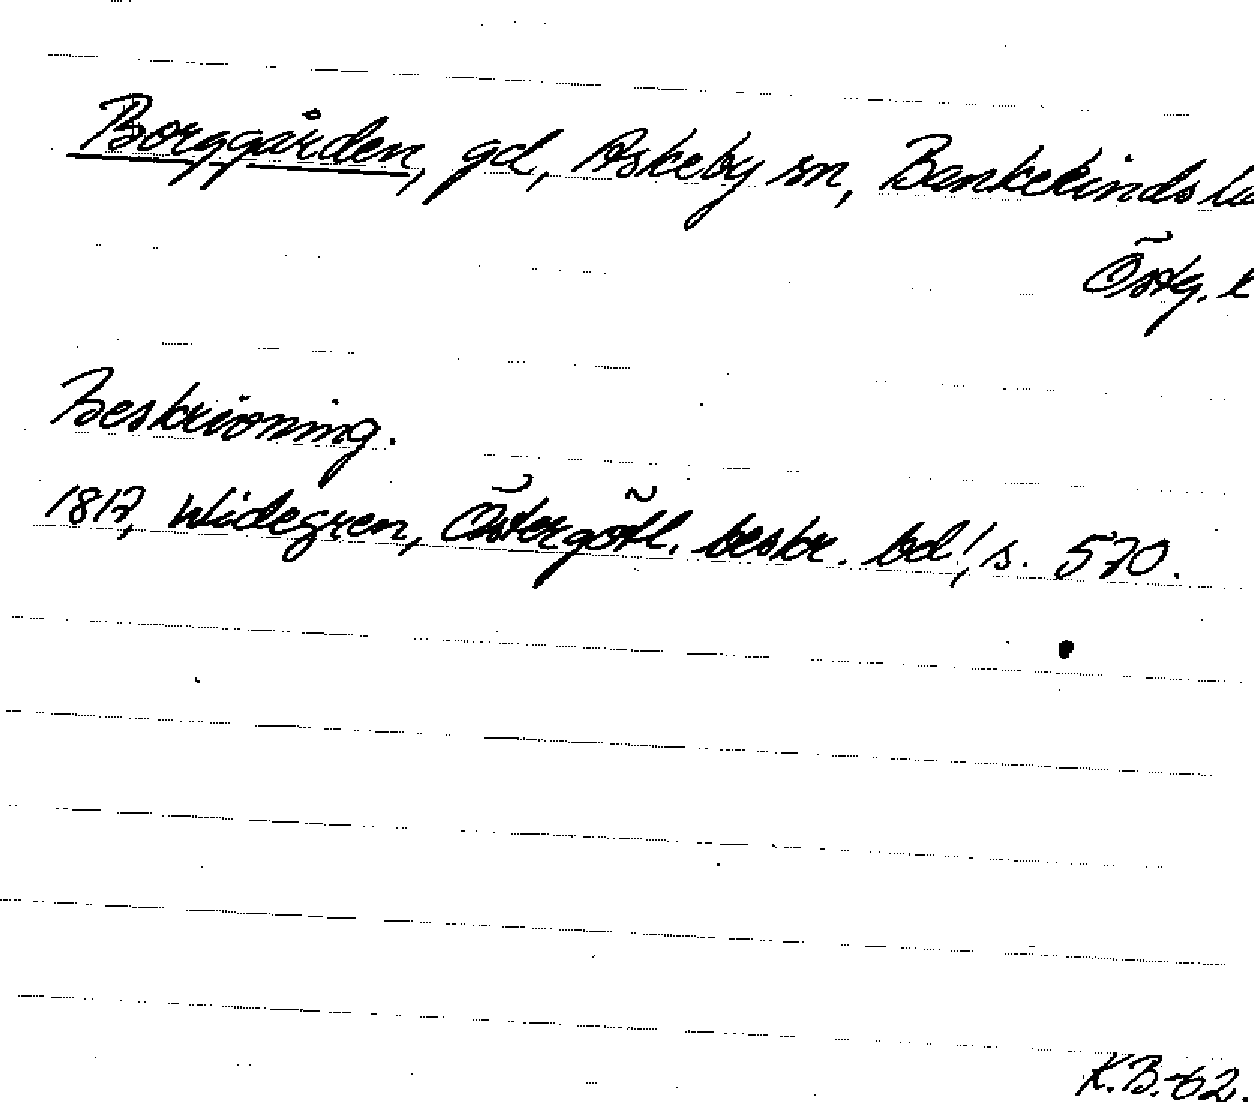 Borggården, gd, Askeby sn, Bankekinds
Östg.
Beskrivning.
1817, Widegren, Östergötl. beskr. bd!, s. 570.
K.B.-62.